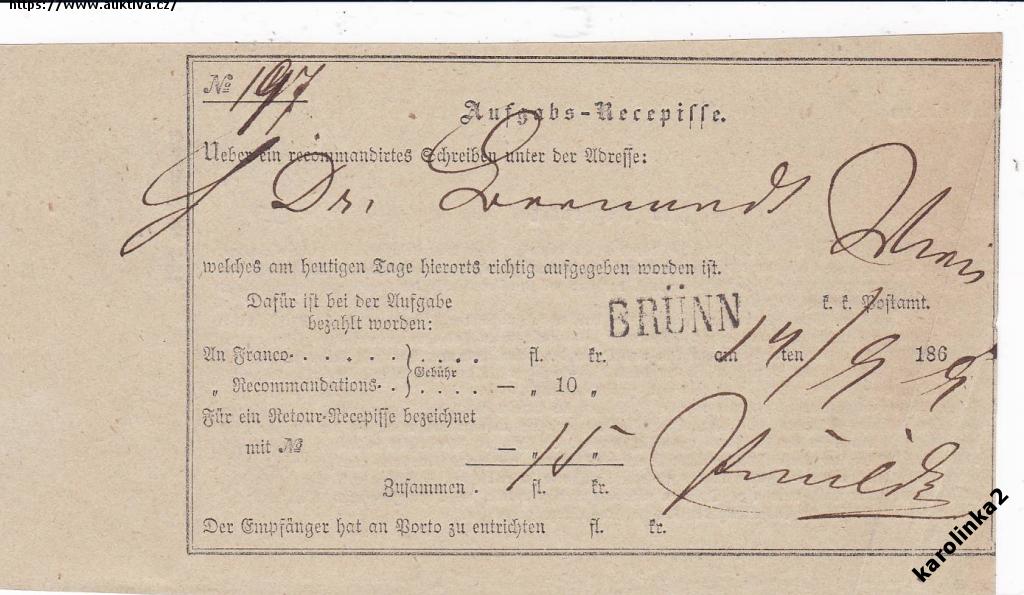 https://www.auktiva.cz/
No 197
Aufgabs-Recepisse.
Ueber ein recommandirtes Schreiben unter der Adresse:
Dr.
Wien
welches am heutigen Tage hierorts richtig aufgegeben worden ist.
Dafür ist bei der Aufgabe
bezahlt worden:
BRÜNN
k. k. Postamt.
An Franco- . . . . . . } . . . . fl. kr.
am 14 ten / 9 1869
Gebühr
„ Recommandations- . . } . . . . — „ 10 „
Für ein Retour-Recepisse bezeichnet
mit No — „ „
15
Zusammen . fl. kr.
Der Empfänger hat an Porto zu entrichten fl. kr.
karolinka2